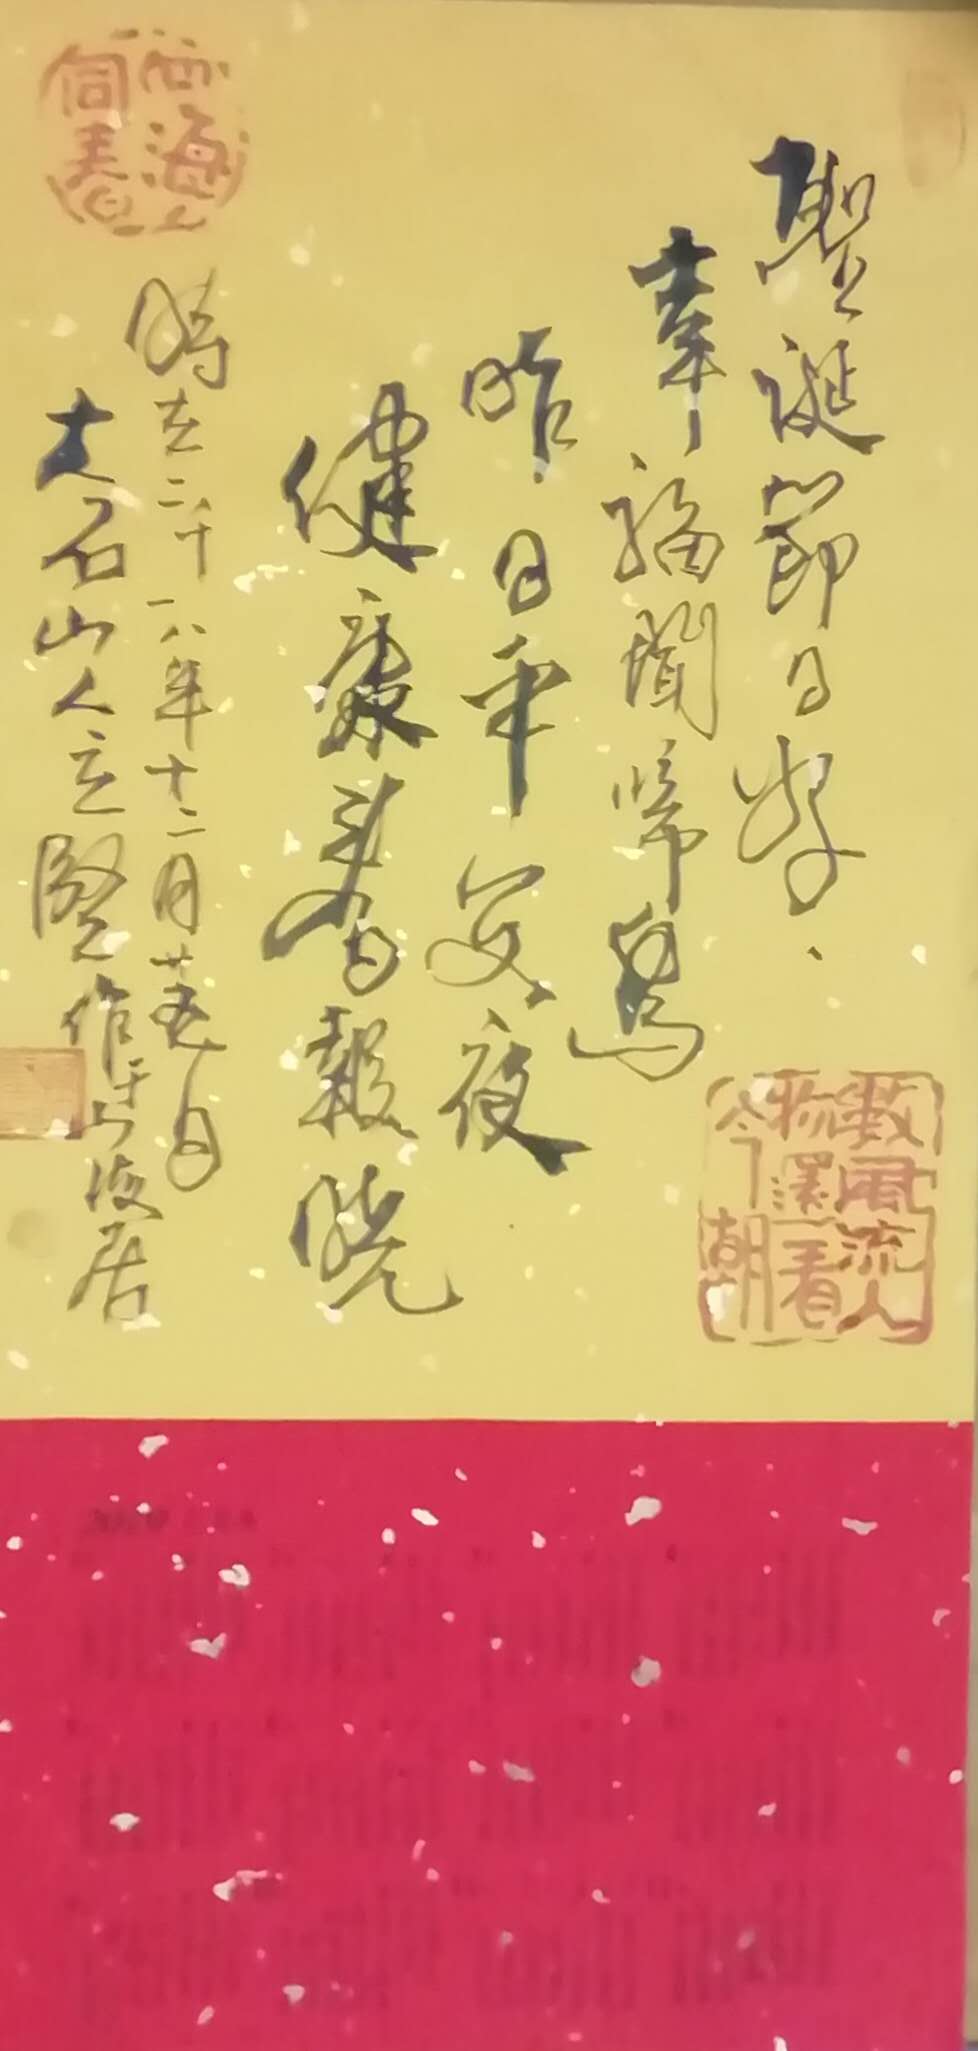 聖誕節日好
幸福聞啼鳥
昨日平安夜
健康壽報曉
時在二千一八年十二月廿五日
大石山人立賢作于上海居
四海同春
數風流人物還看今朝